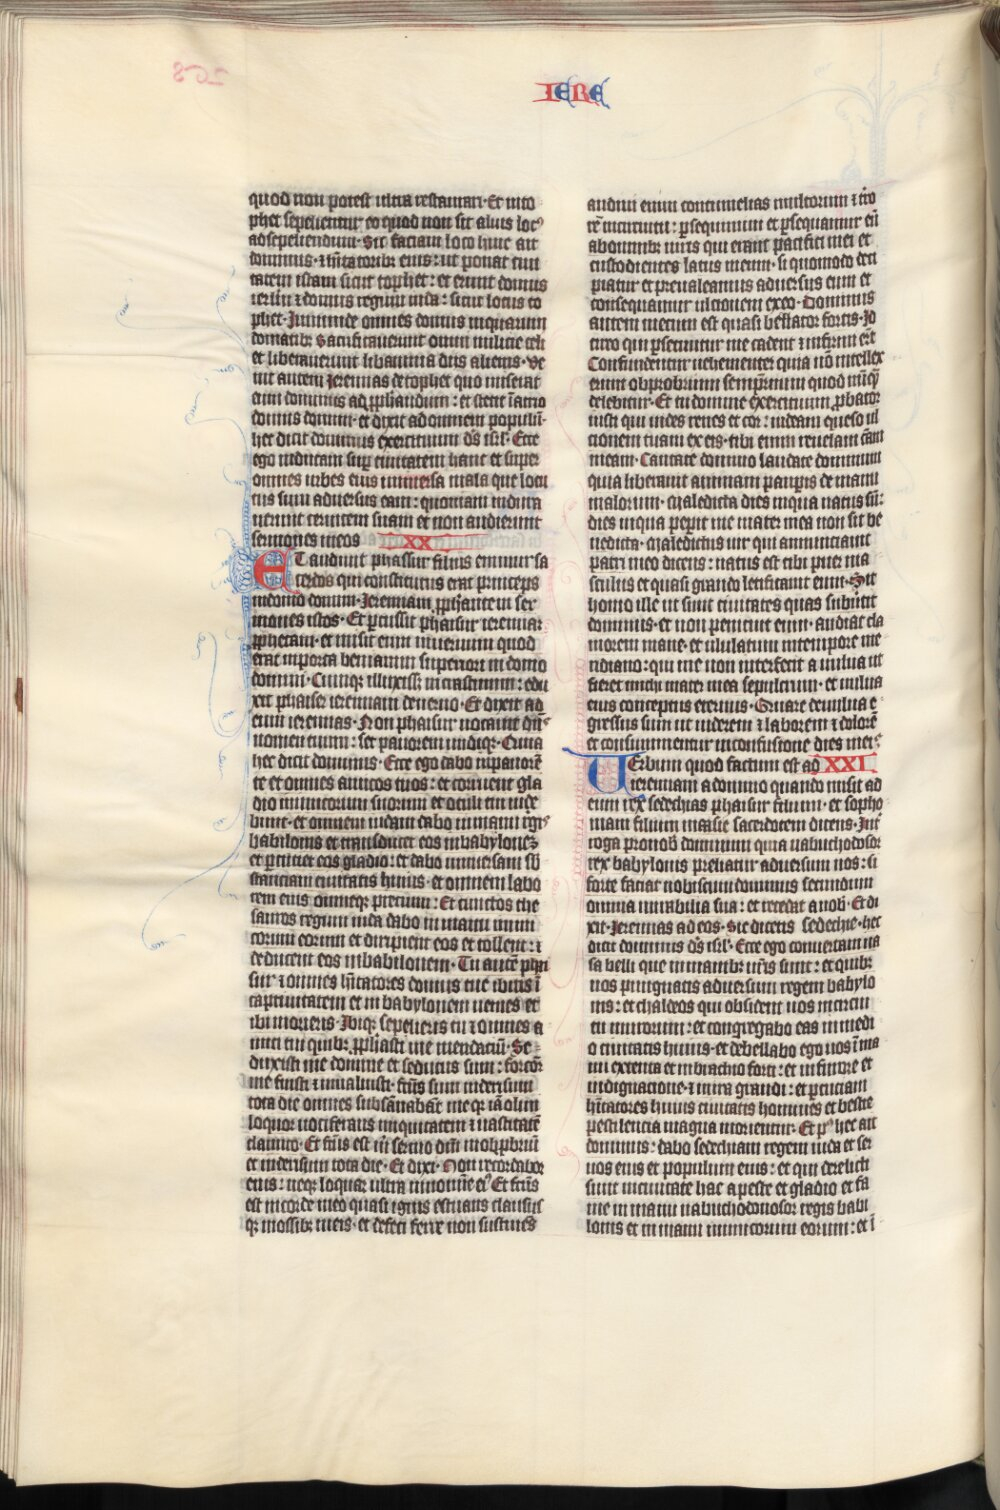 IERE
quod non potest ultra restaurari·Et in to
phet sepelientur eo quod non sit alius loc⁹
ad sepeliendum·Sic faciam loco huic ait
dominus·⁊ hitatoribꝫ eius:ut ponat civi
tatem istam sicut tophet:et erunt domus
ierlm ⁊ domus regum iuda:sicut locus to
phet·Inmunde omnes domus in quarum
domatibꝫ sacrificaverunt omni militie celi
et libaverunt libamina diis alienis·Ve
nit autem Jeremias de tophet quo miserat
eum dominus ad ꝓphandum:et stetit ī atrio
domus domini·et dixit ad omnem populū·
hec dicit dominus exercituum dс̄ isrl·Ecce
ego inducam super civitatem hanc et super
omnes urbes eius universa mala que locu
tus sum adversus eam:quoniam indura
verunt cervicem suam et non audierunt
sermones meos XX
ET audivit phassur filius emmur sa
cerdos qui constitutus erat princeps
in domo domini·Jeremiam ꝓphante in ser
mones istos·Et ꝑcussit phassur ieremiaꝫ
ꝓphetam·et misit eum in nervum quod
erat in porta beniamin superiori in domo
domini·Cumqꝫ illuxissꝫ in crastinum:edu
xit phassur ieremiam de nervo·Et dixit ad
eum ieremias·Non phassur vocavit dn̄s
nomen tuum:set pavorem undiqꝫ·Quia
hec dicit dominus·Ecce ego dabo in pavorē
te et omnes amicos tuos:et corruent gla
dio inimicorum suorum et oculi tui vide
bunt·et omnem iudam dabo in manu regis
babilonis et transducet eos in babylonē
et ꝑcutiet eos gladio:et dabo universam sb̄
stantiam civitatis huius·et omnem labo
rem eius omneqꝫ precium:Et cunctos the
sauros regum iuda dabo in manu inimi
corum eorum et diripient eos et tollent:⁊
deducent eos in babilonem·Tu autē phas
sur ⁊ omnes hītatores domus tue ibitis ī
captivitatem et in babylonem venies et
ibi morieris·Ibiqꝫ sepelieris tu ⁊ omnes a
mici tui quibꝫ ꝓphasti me mendaciū·Se
duxisti me domine et seductus sum:forcior
me fuisti ⁊ invaluisti·fc̄us sum in derisum
tota die omnes subsānabāt me qꝫ iā olim
loquor vociferans iniquitatem ⁊ vastitatē
clamito·Et fc̄us est m̄ sermo dn̄i in obꝓbriū
et in derisum tota die·Et dixi·Non recordabor
eius:neqꝫ loquar ultra in nomine ei⁹·Et fc̄us
est in corde meo quasi ignis estuans clausus
qꝫ in ossibꝫ meis·et defeci ferre non sustines
audivi enim contumelias multorum ⁊ t̄ro
rē in circuitu:ꝑsequimini et ꝑsequamur eū
ab omnibꝫ viris qui erant pacifici mei et
custodientes latus meum·si quomodo deci
piatur et prevaleamus adversus eum et
consequamur ulcionem ex eo·Dominus
autem mecum est quasi bellator fortis·Id
circo qui ꝑsecuntur me cadent ⁊ infirmi er̄t
Confundentur vehementer quia nō intellex
erunt obprobrium sempiternum quod nūqꝫ
delebitur·Et tu domine exercituum ꝓbator
iusti qui vides renes et cor:videam queso ul
cionem tuam ex eis·tibi enim revelavi cām
meam·Cantate domino laudate dominum
quia liberavit animam pauperis de manu
malorum·Maledicta dies in qua natus sū:
dies in qua peperit me mater mea non sit be
nedicta·Maledictus vir qui annunciavit
patri meo dicens:natus est tibi puer ma
sculus et quasi grandio letificavit eum·Sit
homo ille ut sunt civitates quas subvertit
dominus·et non penituit eum·audiat cla
morem mane·et ululatum in tempore me
ridiano:qui me non interfecit a vulva ut
fieret michi mater mea sepulcrum·et vulva
eius conceptus eternus·Quare de vulva e
gressus sum ut viderem ⁊ laborem ⁊ dolorē
et consummentur in confusione dies mei·
Verbum quod factum est ad XXI
ieremiam a domino quando misit ad
eum rex sedechias phassur filium·et sopho
niam filium maasie sacerdotem dicens·Int̄
roga pro nob̄ dominum quia nabuchodosor
rex babylonis preliatur adversum nos:si
forte faciat nobiscum dominus secundum
omnia mirabilia sua:et recedat a nob̄·Et di
xit·Jeremias ad eos·Sic dicetis sedechie·hec
dicit dominus dс̄ isrl·Ecce ego convertam va
sa belli que in manibꝫ vr̄is sunt:et quibꝫ
vos pungnatis adversum regem babylo
nis:et chaldeos qui obsident vos in circui
tu murorum:et congregabo eas in medi
o civitatis huius·et debellabo ego vos ī ma
nu extenta et in brachio forti:et in furore et
indignacione·⁊ in ira grandi:et ꝑcuciam
hītatores huius civitatis homines et bestie
pestilencia magna morientur·Et pꝰ hec ait
dominus:dabo sedechiam regem iuda et ser
vos eius et populum eius:et qui derelicti
sunt in civitate hac a peste et gladio et fa
me in manu nabuchodonosor regis babi
lonis et in manu inimicorum eorum:et ī